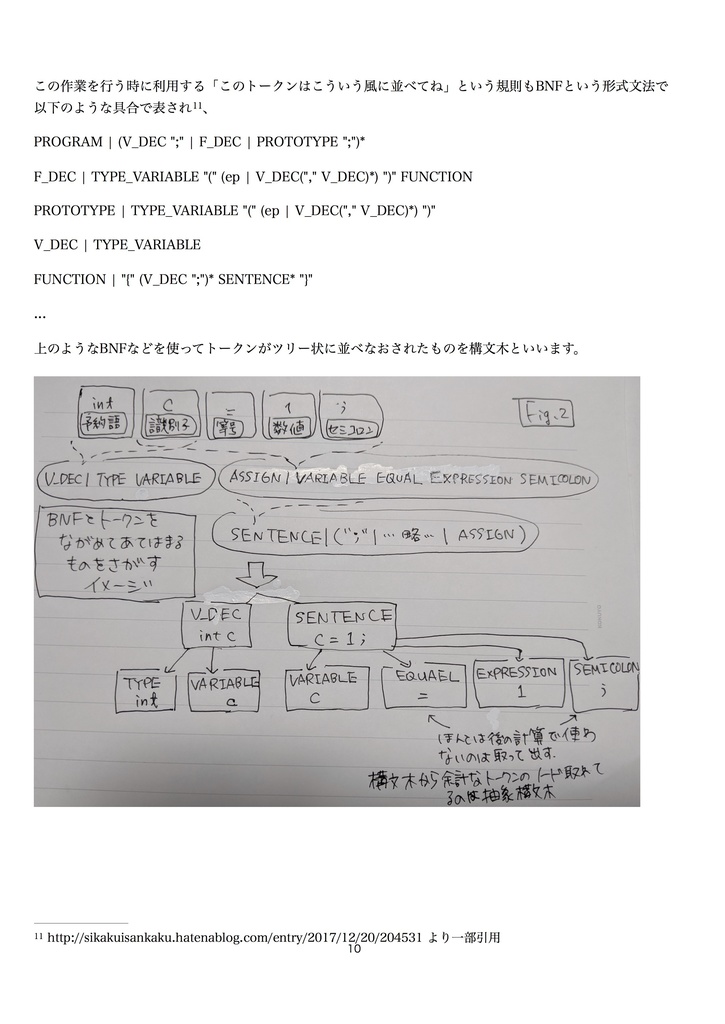 この作業を行う時に利用する「このトークンはこういう風に並べてね」という規則もBNFという形式文法で
以下のような具合で表され¹¹、
PROGRAM | (V_DEC ";" | F_DEC | PROTOTYPE ";")*
F_DEC | TYPE_VARIABLE "(" (ep | V_DEC("," V_DEC)*) ")" FUNCTION
PROTOTYPE | TYPE_VARIABLE "(" (ep | V_DEC("," V_DEC)*) ")"
V_DEC | TYPE_VARIABLE
FUNCTION | "{" (V_DEC ";")* SENTENCE* "}"
...
上のようなBNFなどを使ってトークンがツリー状に並べなおされたものを構文木といいます。
int C = 1 ;
予約語 識別子 等号 数値 セミコロン
Fig.2
V_DEC | TYPE VARIABLE
ASSIGN | VARIABLE EQUAL EXPRESSION SEMICOLON
BNFとトークンを
ながめてあてはまる
ものをさがす
イメージ
SENTENCE | (";" | … 略 … | ASSIGN)
V_DEC
int c
SENTENCE
C = 1 ;
TYPE
int
VARIABLE
c
VARIABLE
C
EQUAEL
=
EXPRESSION
1
SEMICOLON
;
ほんとは後の計算で使わ
ないのは取って出す.
構文木から余計なトークンのノード取れて
るのは抽象構文木
¹¹ http://sikakuisankaku.hatenablog.com/entry/2017/12/20/204531 より一部引用
10